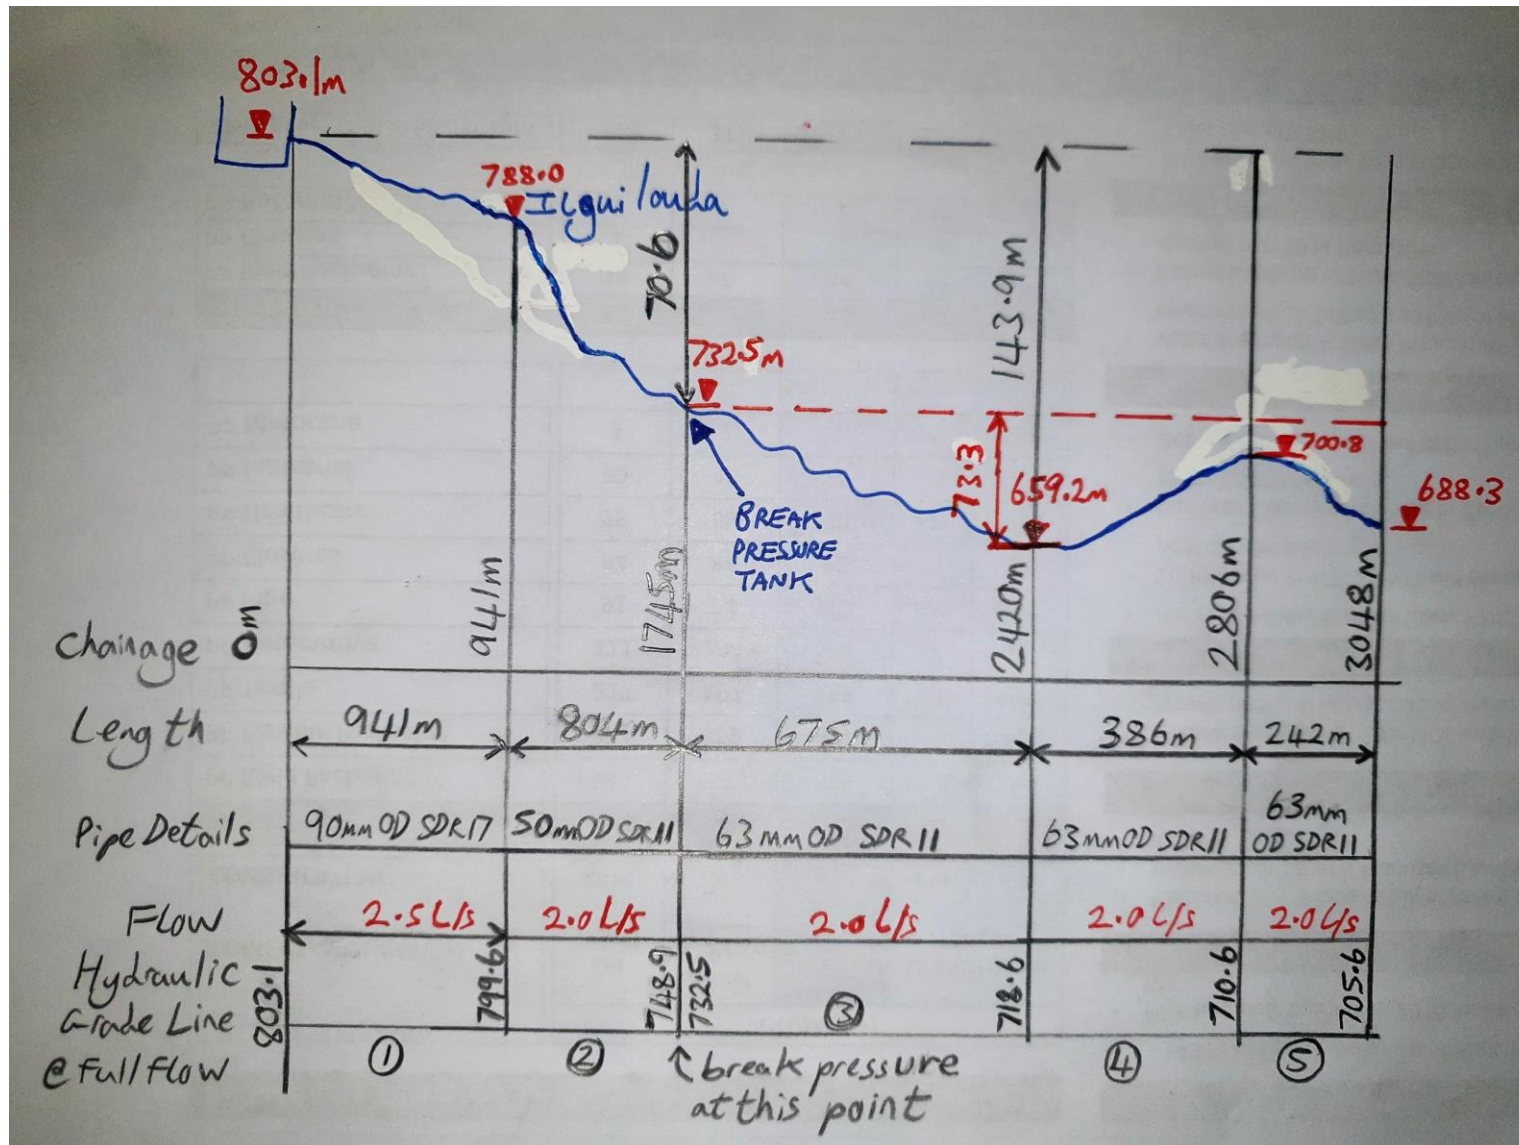 803.1m
788.0
Ilguilouda
70.6
143.9m
732.5m
73.3
659.2m
700.8
688.3
BREAK
PRESSURE
TANK
Chainage 0m
941m
1745m
2420m
2806m
3048m
Length
941m
804m
675m
386m
242m
Pipe Details
90mm OD SDR17
50mm OD SDR11
63mm OD SDR11
63mm OD SDR11
63mm
OD SDR11
Flow
2.5 L/s
2.0 L/s
2.0 L/s
2.0 L/s
2.0 L/s
Hydraulic
Grade Line
@ Full Flow
803.1
799.6
748.9
732.5
718.6
710.6
705.6
①
②
③
④
⑤
break pressure
at this point